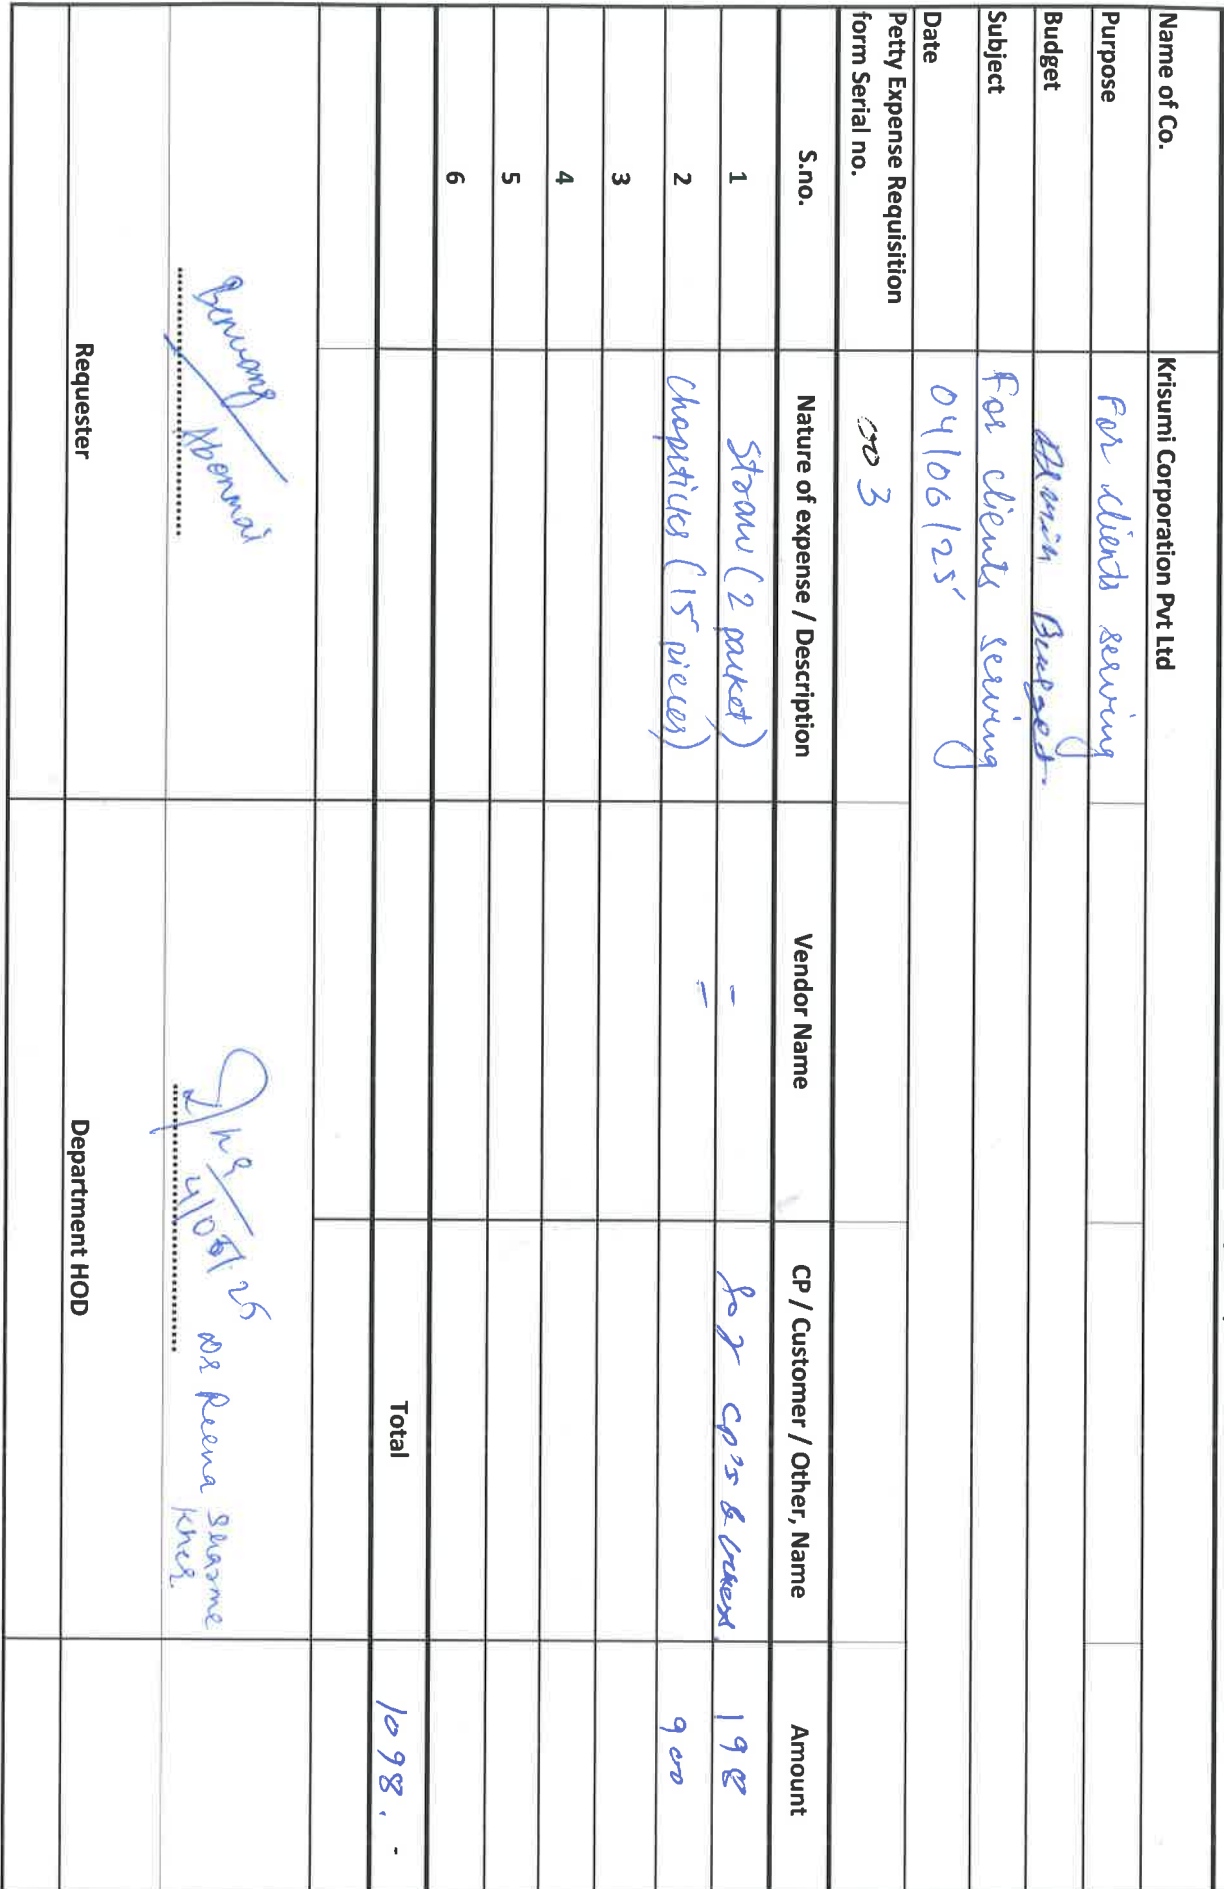 Name of Co. Krisumi Corporation Pvt Ltd
Purpose For clients serving
Budget Admin Budget.
Subject For clients serving
Date 04/06/25
Petty Expense Requisition
form Serial no. 003
S.no. Nature of expense / Description Vendor Name CP / Customer / Other, Name Amount
1 Straw (2 packet) - for CP's & 198
2 Chopsticks (15 pieces) - 900
3
4
5
6
Total 1098. -
Abonmai
4/06/25 Dr Reena Sharma
Requester Department HOD